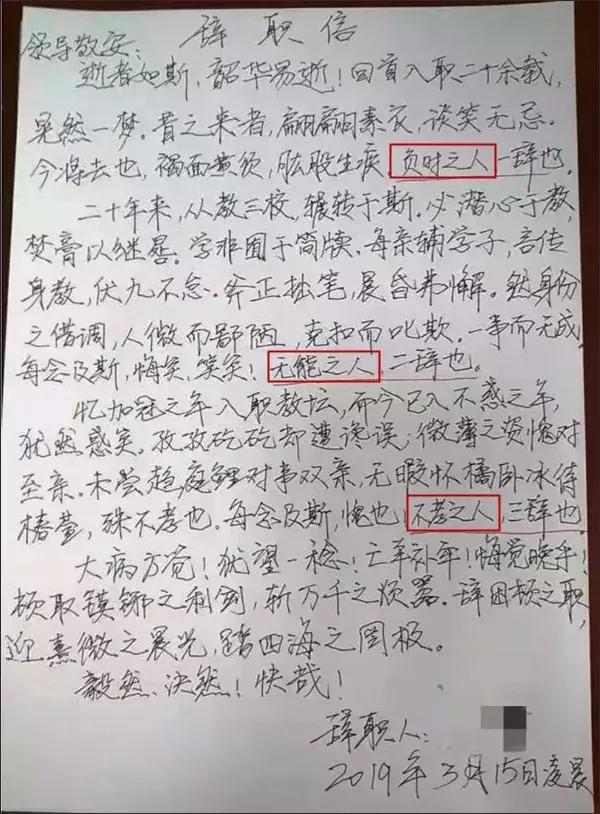 辞职信
领导敬安：
逝者如斯，韶华易逝！回首入职二十余载，
晃然一梦。昔之来者，翩翩素衣，谈笑无忌。
今将去也，褶面黄须，肱股生疾。负时之人一辞也。
二十年来，从教三校，辗转于斯。必潜心于教，
焚膏以继晷。学非囿于简牍。每亲辅学子，言传
身教，伏九不怠。斧正拙笔，晨昏弗懈。然身份
之借调，人微而鄙陋，克扣而叱欺。一事而无成
每念及斯，悔矣，笑矣！无能之人，二辞也。
忆加冠之年入职教坛，而今已入不惑之年，
犹然惑矣。孜孜矻矻却遭谗误，微薄之资愧对
至亲。未尝趋庭鲤对事双亲，无暇怀橘卧冰侍
椿萱，殊不孝也。每念及斯，愧也！不孝之人，三辞也
大病方苍！犹望一稔！亡羊补牢！悔觉晚乎！
顿取镆铘之利剑，斩万千之烦嚣。辞困顿之职，
迎熹微之晨光，踏四海之罔极。
毅然、决然！快哉！
辞职人：
2019年3月15日凌晨